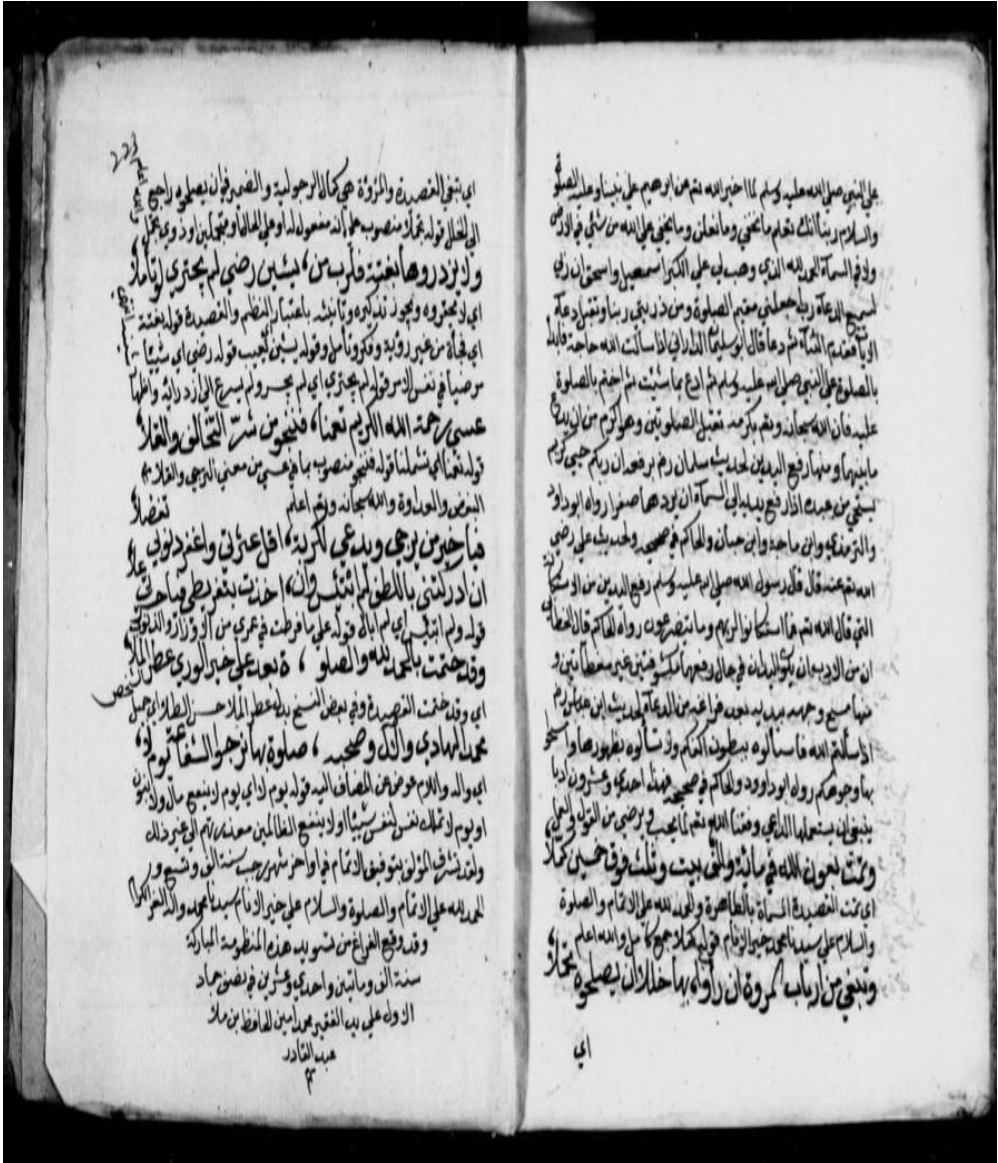 على النبي صلى الله عليه وسلم لما اخبر الله تعم عن ابرهيم على نبينا وعليه الصلوة
والسلام ربنا انك تعلم ما نخفي وما نعلن وما يخفى على الله من شئ في الارض
ولا في السمآء الحمد لله الذي وهب لي على الكبر اسمعيل واسحق ان ربي
لسميع الدعآء رب اجعلني مقيم الصلوة ومن ذريتي ربنا وتقبل دعآء
فقدم الثنآء ثم دعا قال ابو سليمان الداراني اذا سالت الله حاجة فابدأ
بالصلوة على النبي صلى الله عليه وسلم ثم ادع بما شئت ثم اختم بالصلوة
عليه فان الله سبحانه وتعم بكرمه تقبل الصلوتين وهو اكرم من ان يدع
ما بينهما ومنها رفع اليدين لحديث سلمان رض يرفعه ان ربكم حيي كريم
يستحي من عبده اذا رفع يديه الى السمآء ان يردها صفرا رواه ابو داود
والترمذي وابن ماجة وابن حبان والحاكم في صحيحه ولحديث علي رضي
الله تعم عنه قال قال رسول الله صلى الله عليه وسلم رفع اليدين من الاستكانة
التي قال الله تعم فما استكانوا لربهم وما يتضرعون رواه الحاكم قال الخطابي
ان من الادب ان يكون اليدان في حال رفعهما مكشوفتين غير مغطاتين و
منها مسح وجهه بيديه بعد فراغه من الدعآء لحديث ابن عباس رض
اذا سالتم الله فاسألوه ببطون اكفكم ولا تسألوه بظهورها وامسحوا
بها وجوهكم رواه ابو داوود والحاكم في صحيحه فهذه احدى وعشرون ادبا
ينبغي ان يستعملها الداعي وفقنا الله تعم لما يحب ويرضى من القول والعمل
وتمت بعون الله في مائة والفي بيت وثلث فوق خمسين كملا
اي تمت القصيدة المسماة بالطاهرة والحمد لله على الاتمام والصلوة
والسلام على سيدنا محمد خير الانام قوله كملا جمع كامل والله اعلم
ونبغي من ارباب المروة ان رأوا بها خللا ان يصلحوه تجملا
اي
اي نبغي القصيدة والمروؤة هي كمال الرجولية والضمير في ان يصلحوه راجع
الى الخلل قوله تجملا منصوب على انه مفعول له او على الحال او متجملين او ذوي تجمل
ولا يزدروها بغتة فلرب من بشين رضي لم يجتري لو تأملا
اي لا يحتقروه ويجوز تذكيره وتانيثه باعتبار النظم والقصيدة قوله بغتة
اي فجأة من غير روية وفكر وتامل وقوله بشين كعيب قوله رضي اي شيئا
مرضيا في نفس الامر قوله لم يجتري اي لم يجسر ولم يسرع الى ازدرائه
عسى رحمة الله الكريم تعمنا فننجو من شر التخالف والقلا
قوله تعمنا اي تشملنا قوله فننجو منصوب بما في عسى من معنى الترجي والقلا
البغض والعداوة والله سبحانه وتعم اعلم
فيا خير من يرجى ويدعى لكربة اقل عثرتي واغفر ذنوبي تفضلا
ان ادركتني باللطف لم ابتئس وان اخذت بتفريطي فيا حسرتي علا
قوله ولم ابتئس اي لم ابال قوله على ما فرطت في عمري من الاوزار والذنوب
وقد ختمت بالحمد لله والصلو ة بعد على خير الورى عطر الملا
اي وقد ختمت القصيدة وفي بعض النسخ بدل عطر الملا حسن الطلا اي جميل
محمد الهادي وآل وصحبه صلوة بها نرجو الشفاعة يوم لا
اي واله واللام عوض عن المضاف اليه قوله يوم لا اي يوم لا ينفع مال ولا بنون
او يوم لا تملك نفس لنفس شيئا او لا ينفع الظالمين معذرتهم الى غير ذلك
ولقد تشرف المؤلف بتوفيق الاتمام في اواخر شهر رجب سنة الف وتسع و
الحمد لله على الاتمام والصلوة والسلام على خير الانام سيدنا محمد واله الغر الكرام
وقد وقع الفراغ من تسويد هذه المنظومة المباركة
سنة الف وماتين واحدي وعشرين في نصف جماد
الاول على يد الفقير محمد امين الحافظ بن ملا
عبد القادر
تم